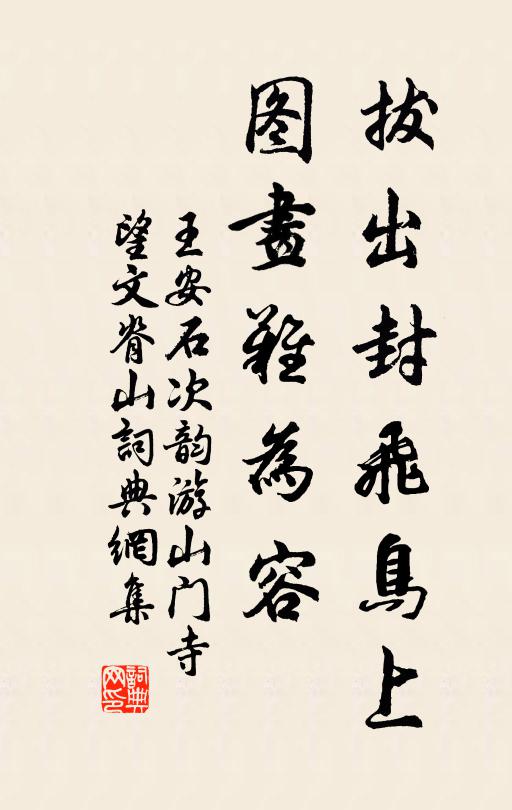 拔出封飛鳥上
图畫難為容
王安石次韵游山门寺
望文脊山詞典網集
詞典
网印